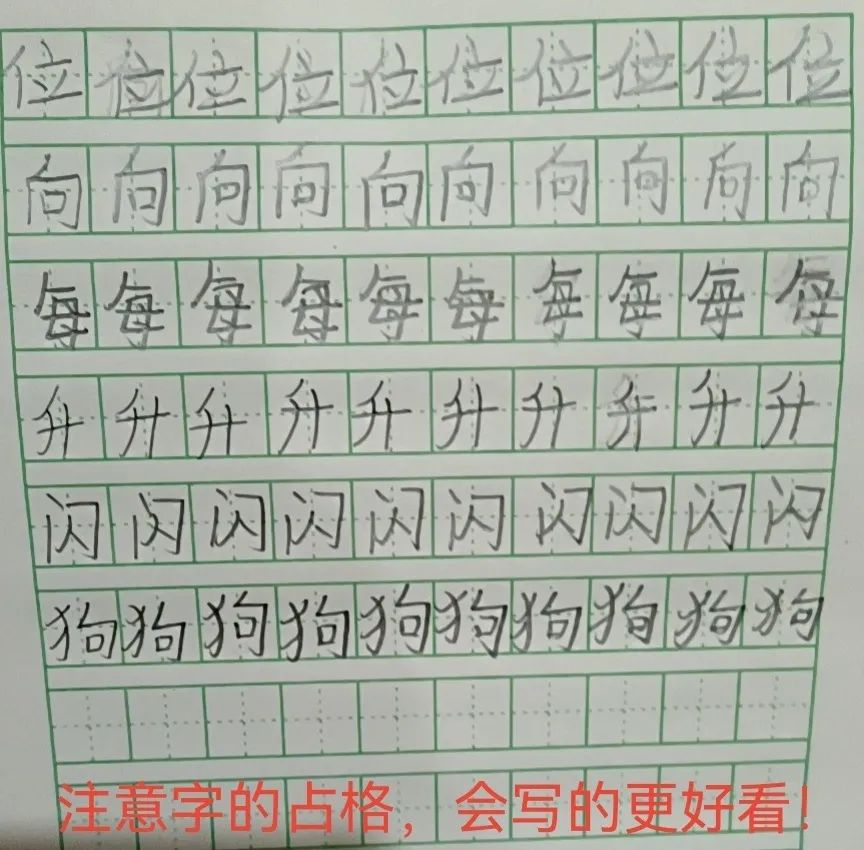 位位位位位位位位位位
向向向向向向向向向向
每每每每每每每每每每
升升升升升升升升升升
闪闪闪闪闪闪闪闪闪闪
狗狗狗狗狗狗狗狗狗狗
注意字的占格，会写的更好看！